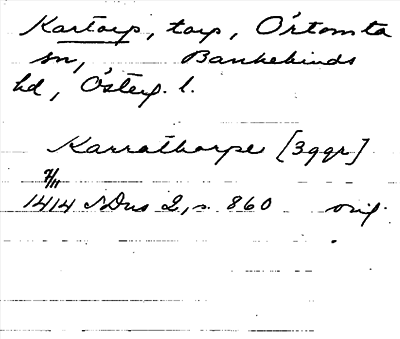 Kartorp, torp, Örtomta
sn, Bankekinds
hd, Österg. l.
Karrathorpe [3 ggr]
2/11
1414 SDns 2, s. 860 orig.